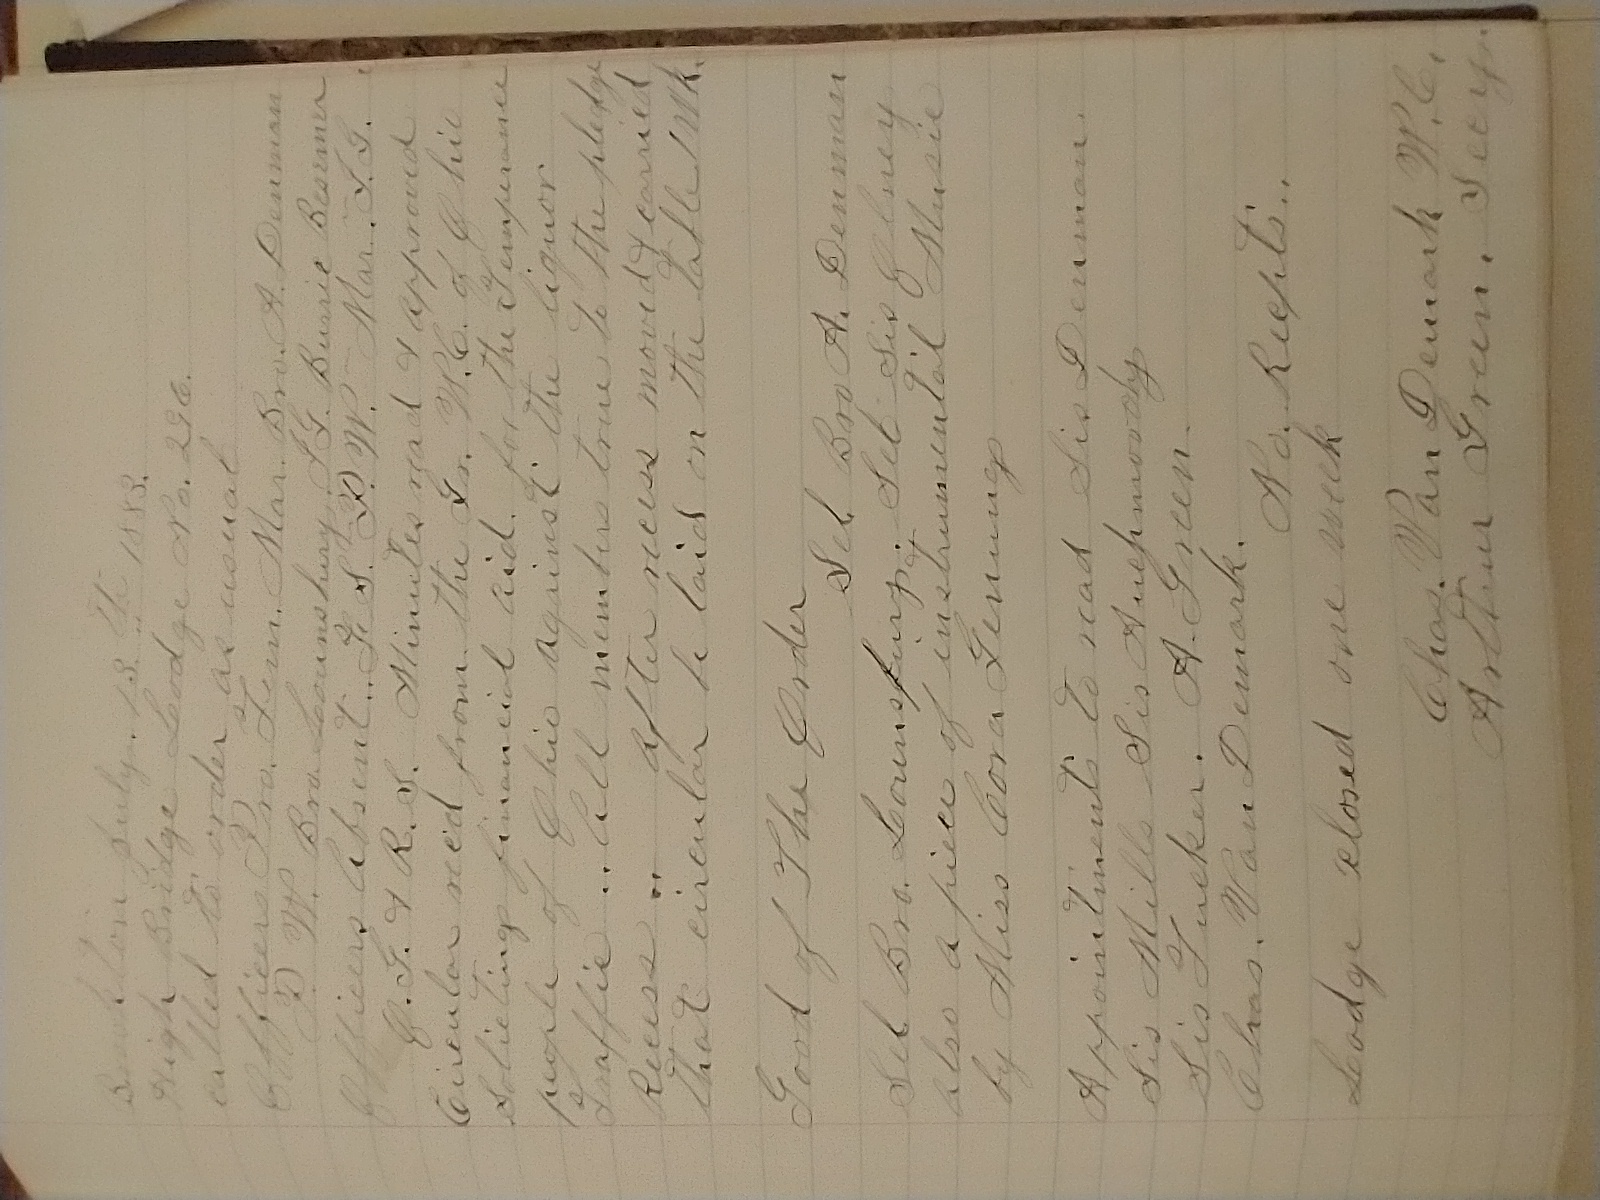 Brookton July. 13.th 1883.
High Bridge Lodge No. 296.
called to order as usual
Officers Pro. Tem. Mar. Bro. A. Denman
P. W. Bro. Lounsbury. I G. Burrie Besemer
Officers Absent.. F. S. P. W. Mar. I. G.
O. G. & R. S. Minutes read & approved
Circular recd from the Gr. W.C. of Ohio
Solieting financial aid. for the Temperance
people of Ohio against the liquor
Traffic .. All members true to the pledge
Recess .. After recess moved & carried
that circular be laid on the table 1 Wk.
Good of The Order
Sel Bro A. Denman
Sel Bro. Lounsbury. Sel Sis Olney
also a piece of instrumental Music
by Miss Cora Genung
Appointments to read Sis Denman.
Sis Mills Sis Auchmoody
Sis Tucker. A. Green.
Chas. Van Demark.
No. Recpts..
Lodge closed one week
Chas. Van Demark W. C.
Arthur Green. Secy.